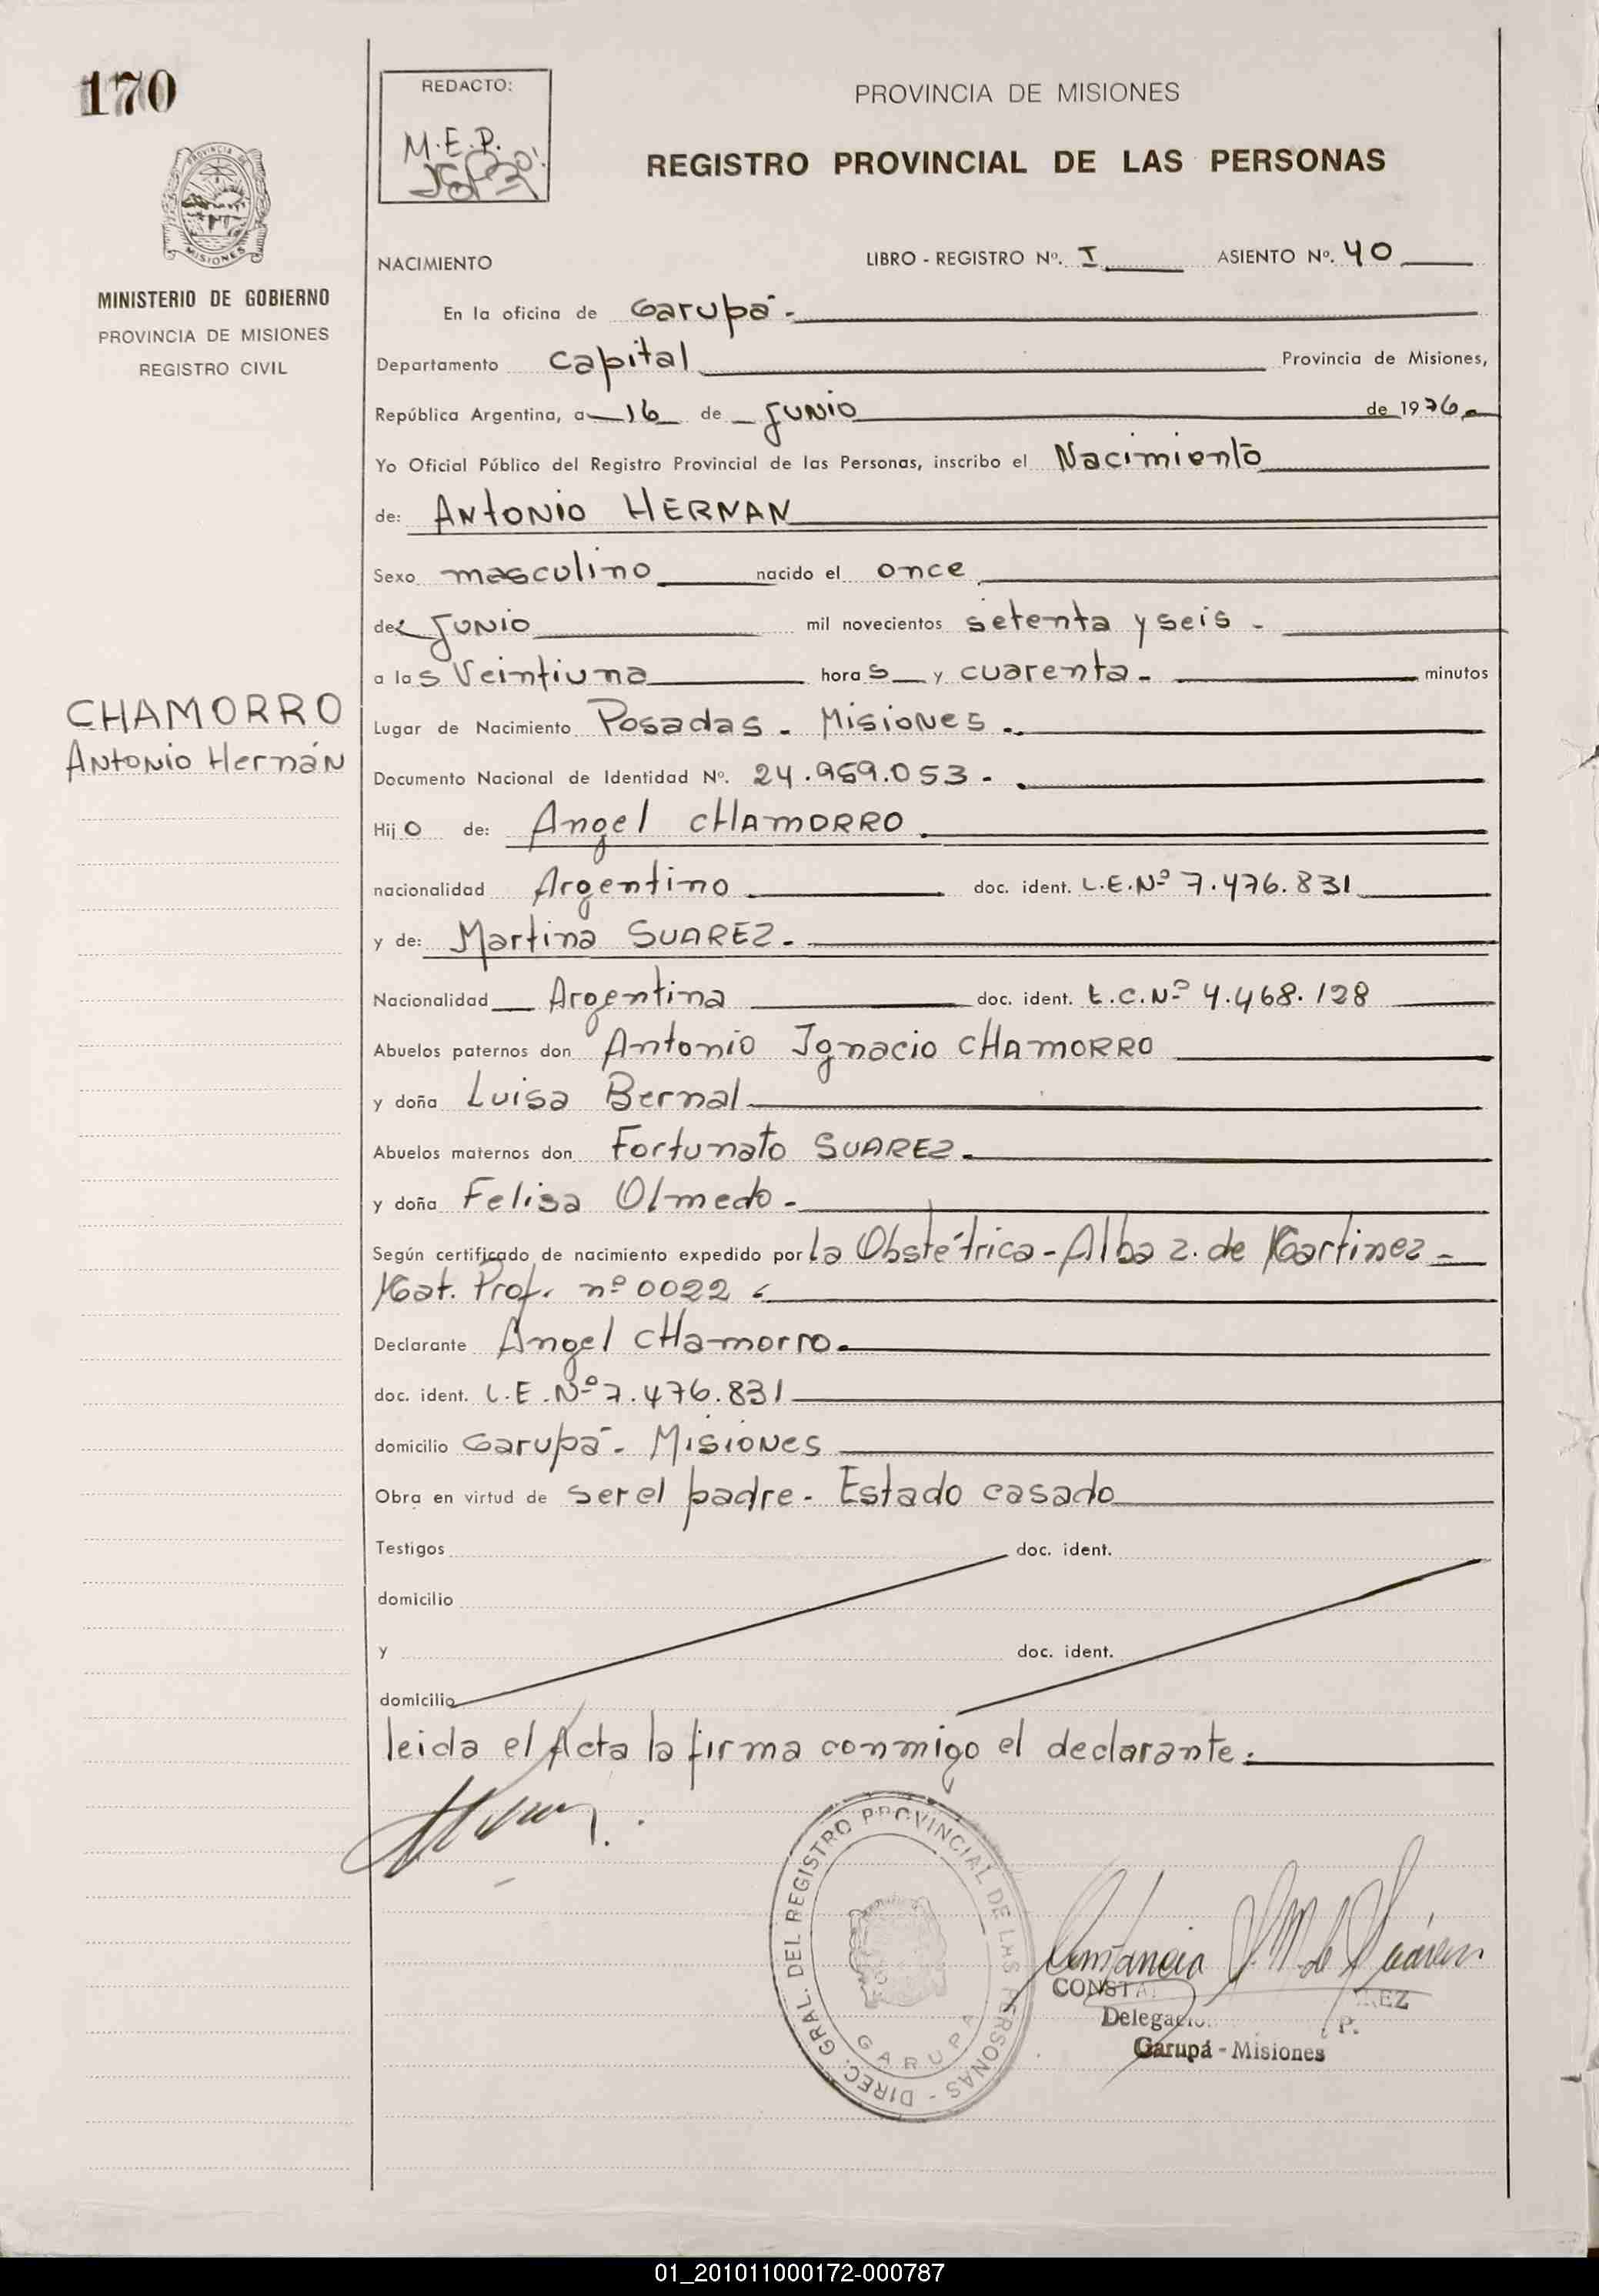 170
REDACTO:
M.E.P.
PROVINCIA DE MISIONES
REGISTRO PROVINCIAL DE LAS PERSONAS
PROVINCIA DE
MISIONES
MINISTERIO DE GOBIERNO
PROVINCIA DE MISIONES
REGISTRO CIVIL
NACIMIENTO LIBRO - REGISTRO Nº. I ASIENTO Nº. 40
En la oficina de Garupá -
Departamento Capital Provincia de Misiones,
República Argentina, a 16 de Junio de 1976
Yo Oficial Público del Registro Provincial de las Personas, inscribo el Nacimiento
de: ANTONIO HERNAN
Sexo masculino nacido el once
de Junio mil novecientos setenta y seis -
a las Veintiuna horas y cuarenta - minutos
CHAMORRO
Antonio Hernán
Lugar de Nacimiento Posadas - Misiones -
Documento Nacional de Identidad Nº. 24.959.053 -
Hijo de: Angel CHAMORRO
nacionalidad Argentino doc. ident. L.E.Nº 7.476.831
y de: Martina SUAREZ -
Nacionalidad Argentina doc. ident. L.C.Nº 4.468.128
Abuelos paternos don Antonio Ignacio CHAMORRO
y doña Luisa Bernal
Abuelos maternos don Fortunato SUAREZ -
y doña Felisa Olmedo -
Según certificado de nacimiento expedido por la Obstétrica - Alba Z. de Martinez -
Mat. Prof. nº 0022
Declarante Angel CHamorro
doc. ident. L.E.Nº 7.476.831
domicilio Garupá - Misiones
Obra en virtud de ser el padre - Estado casado
Testigos doc. ident.
domicilio
y doc. ident.
domicilio
leida el Acta la firma conmigo el declarante.
DIREC. GRAL. DEL REGISTRO PROVINCIAL DE LAS PERSONAS -
GARUPA
Garupá - Misiones
01_201011000172-000787